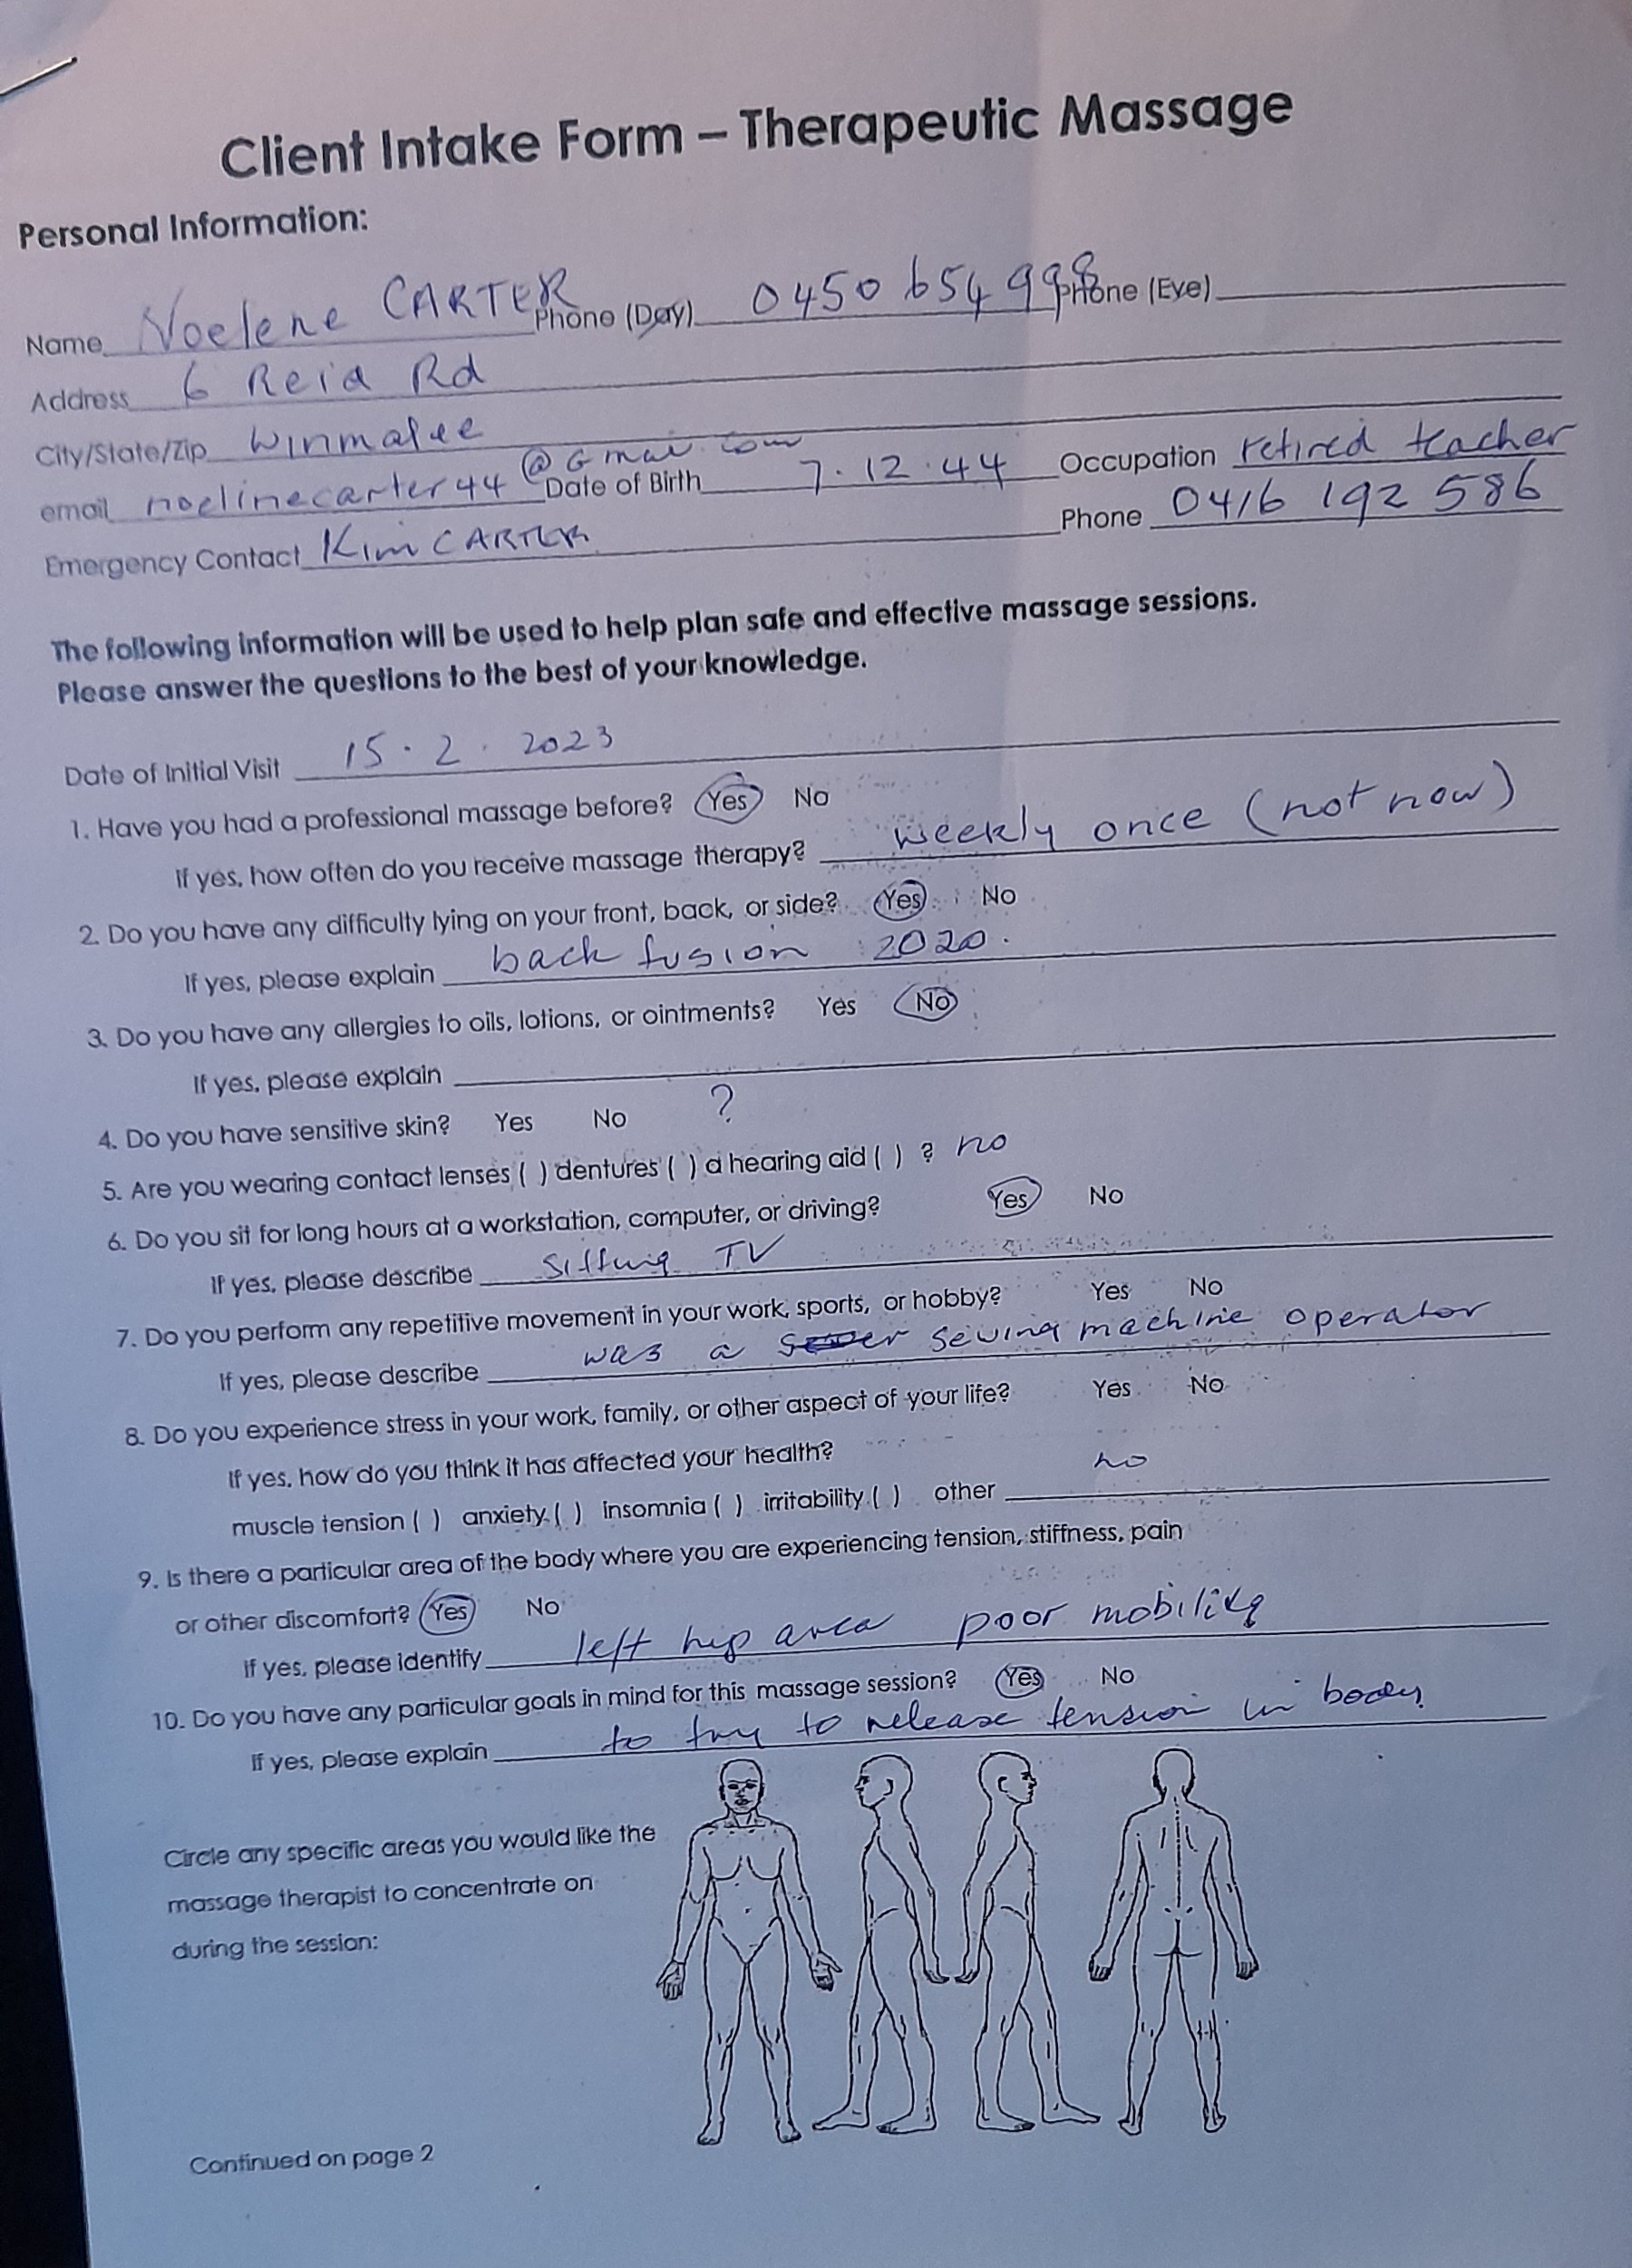 Client Intake Form – Therapeutic Massage
Personal Information:
Name Noelene CARTER Phone (Day) 0450 654 998 Phone (Eve)
Address 6 Reid Rd
City/State/Zip Winmalee
email noelinecarter44 @Gmai.com Date of Birth 7.12.44 Occupation retired teacher
Emergency Contact Kim CARTER Phone 0416 192 586
The following information will be used to help plan safe and effective massage sessions.
Please answer the questions to the best of your knowledge.
Date of Initial Visit 15.2.2023
1. Have you had a professional massage before? Yes No
If yes, how often do you receive massage therapy? weekly once (not now)
2. Do you have any difficulty lying on your front, back, or side? Yes No
If yes, please explain back fusion 2020.
3. Do you have any allergies to oils, lotions, or ointments? Yes No
If yes, please explain
4. Do you have sensitive skin? Yes No ?
5. Are you wearing contact lenses ( ) dentures ( ) a hearing aid ( ) ? no
6. Do you sit for long hours at a workstation, computer, or driving? Yes No
If yes, please describe sitting TV
7. Do you perform any repetitive movement in your work, sports, or hobby? Yes No
If yes, please describe was a sewing machine operator
8. Do you experience stress in your work, family, or other aspect of your life? Yes No
If yes, how do you think it has affected your health?
muscle tension ( ) anxiety ( ) insomnia ( ) irritability ( ) other no
9. Is there a particular area of the body where you are experiencing tension, stiffness, pain
or other discomfort? Yes No
If yes, please identify left hip area poor mobility
10. Do you have any particular goals in mind for this massage session? Yes No
If yes, please explain to try to release tension in body
Circle any specific areas you would like the
massage therapist to concentrate on
during the session:
Continued on page 2